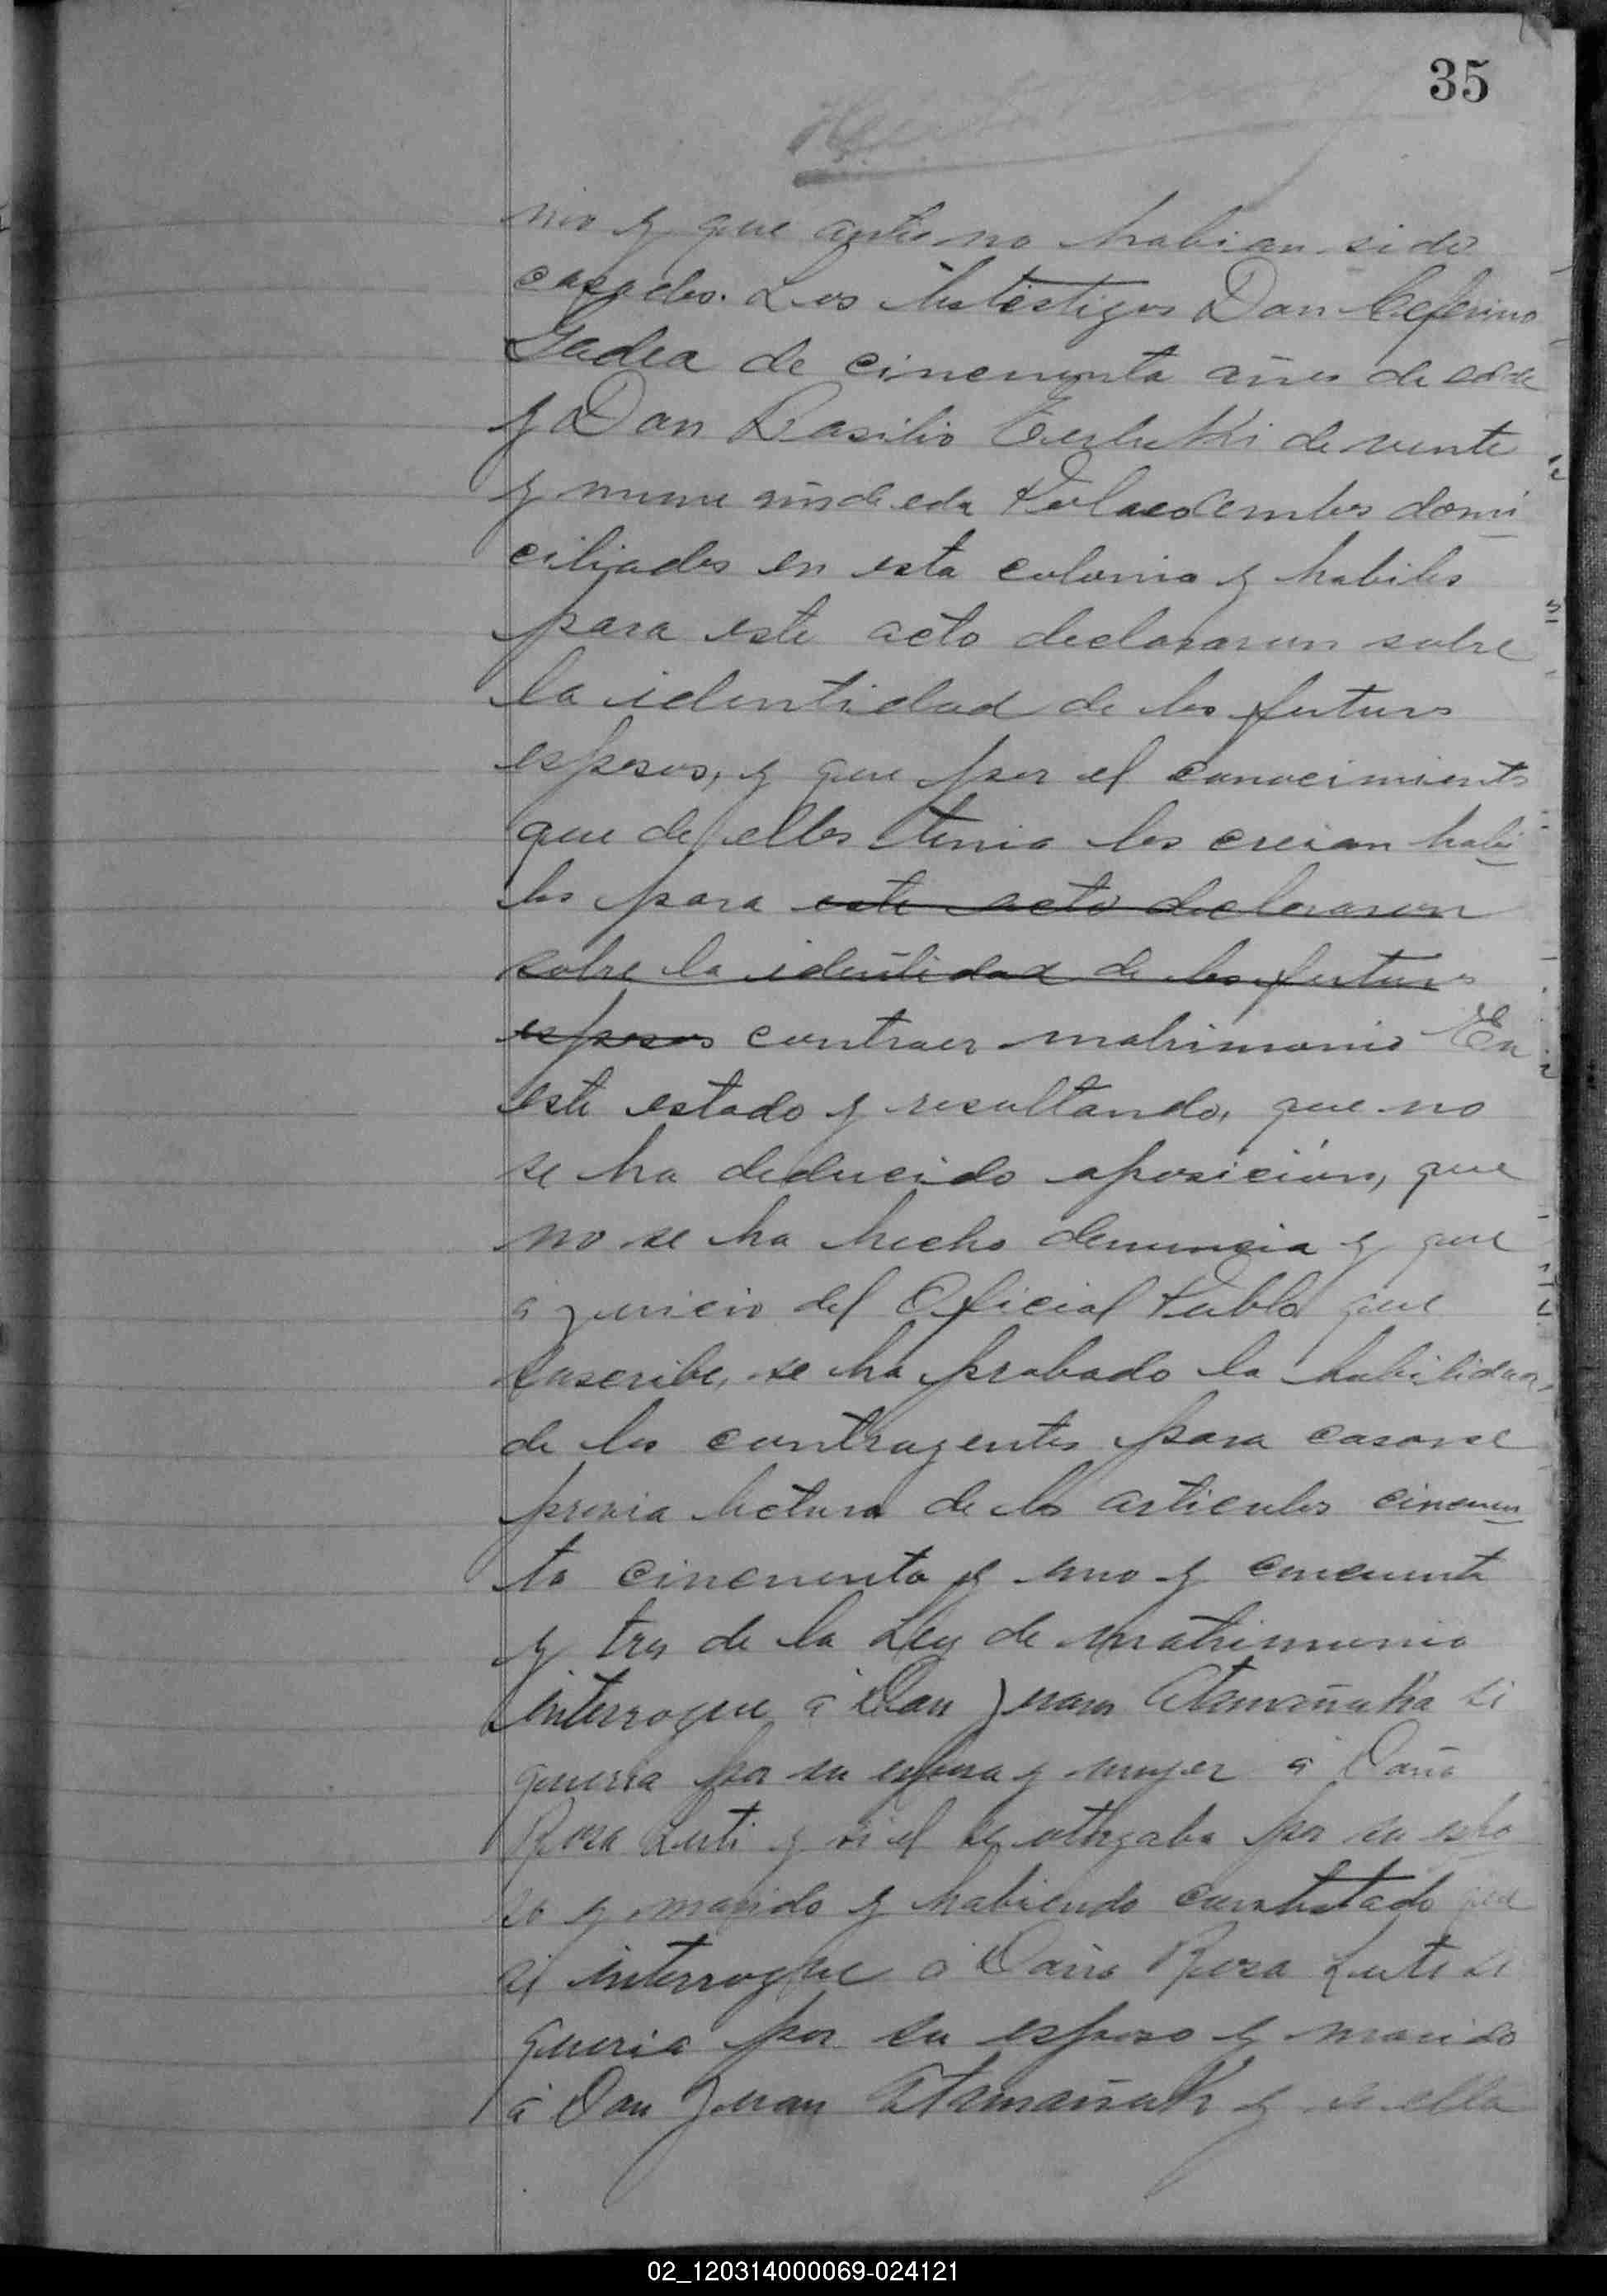 35
nio y que antes no habian sido
casados. Los testigos Don Ceferino
Gadea de cincuenta años de edad
y Don Basilio de veinte
y nueve añs de eda Polaco ambos domi
ciliados en esta colonia y habiles
para este acto declararon sobre
la identidad de los futuros
esposos, y que por el conocimiento
que de ellos tenia los creian habi
les para este acto declararon
sobre la identidad de los futuros
esposos contraer matrimonio En
este estado y resultando, que no
se ha deducido oposición, que
no se ha hecho denuncia y que
a juicio del Oficial Publo que
suscribe, se ha probado la habilidad
de los contrayentes para casarse
previa lectura de los articulos cincuen
ta cincuenta y uno y cincuenta
y tres de la Ley de matrimonio
interrogue á Don Juan Atamañuk si
queria por su esposa y muger á Doña
Rosa Luti y si el se otorgaba por su espo
so y marido y habiendo contestado que
si interrogue á Doña Rosa Luti si
queria por su esposo y marido
á Don Juan Atamañuk y si ella
02_120314000069-024121